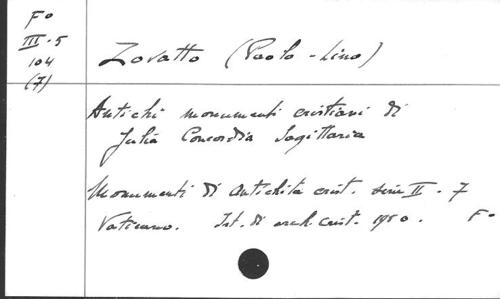 Fo
III-5
104
(7)
Zovatto (Paolo-Lino)
Antichi monumenti cristiani di
Julia Concordia Sagittaria
Monumenti di Antichità crist. serie II - 7
Vaticano. Ist. di arch. crist. 1950. Fo